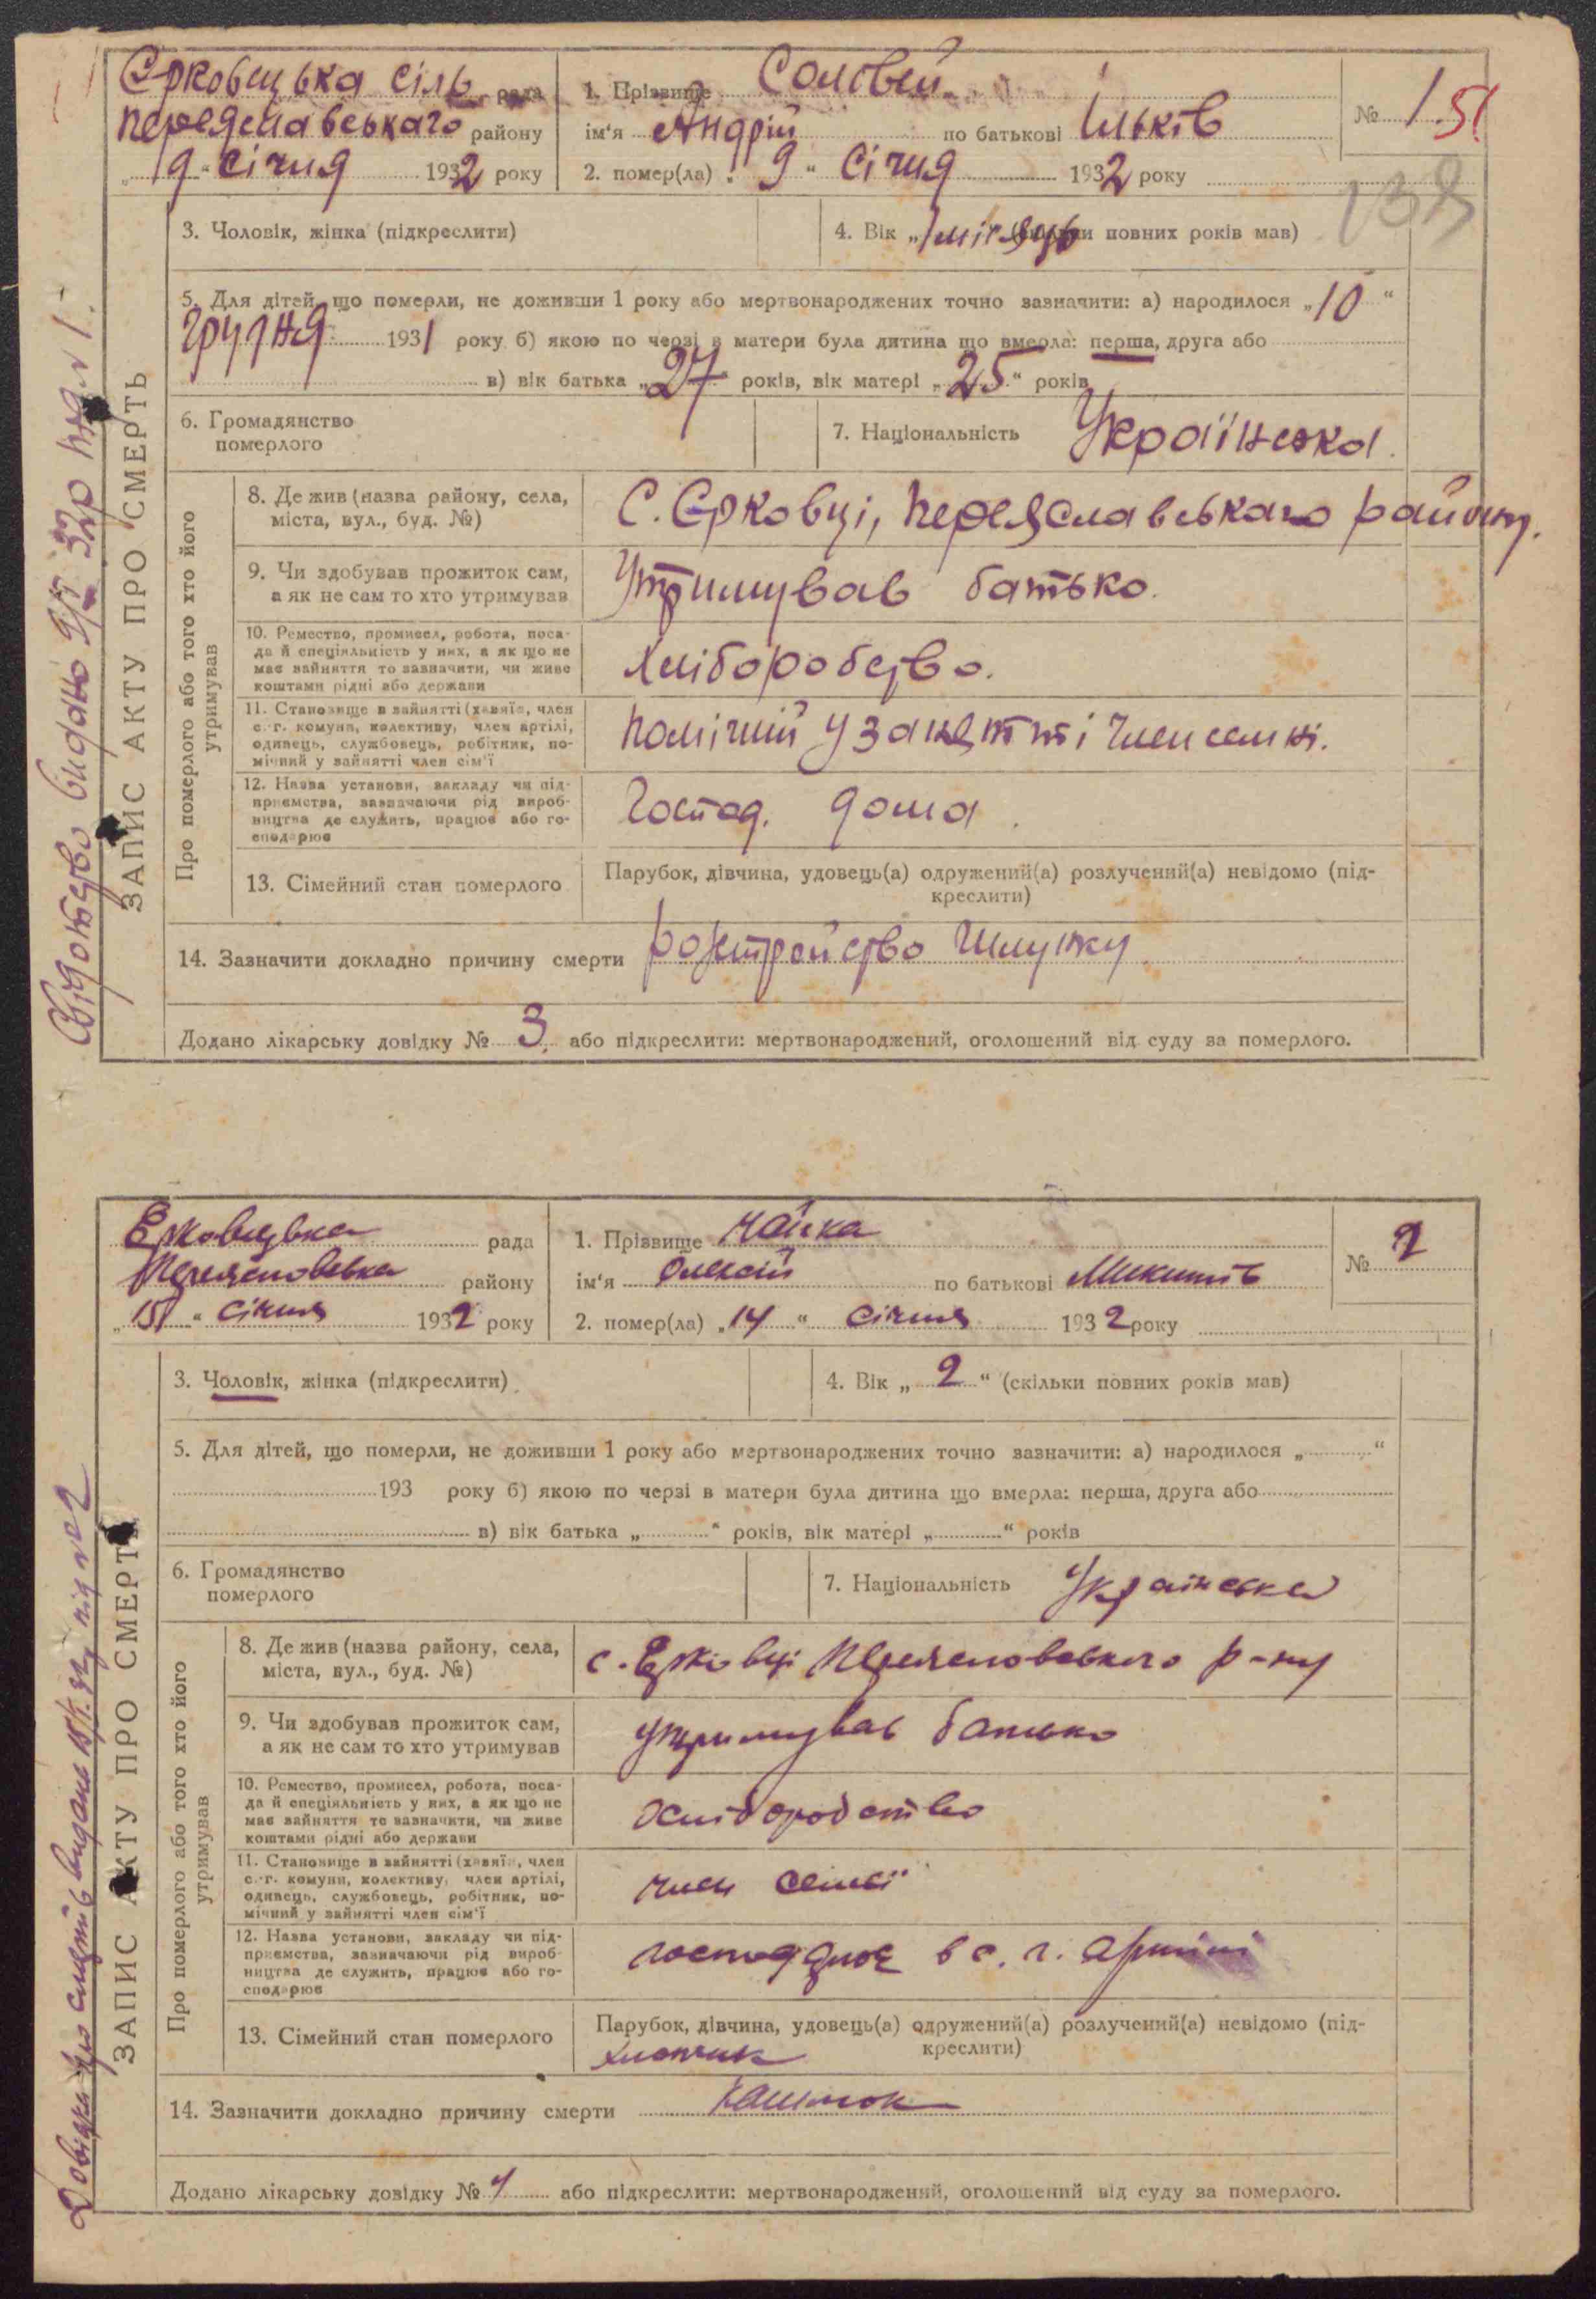 Єрковецька сіль рада
Переяславського району
„ 9 “ Січня 1932 року
1. Прізвище Соловей
ім‘я Андрій по батькові Ільків
2. помер(ла) „ 9 “ Січня 1932 року
№ 1. 51
139
3. Чоловік, жінка (підкреслити)
4. Вік „ 1 місяць (скільки повних років мав)
5. Для дітей, що померли, не доживши 1 року або мертвонароджених точно зазначити: а) народилося „ 10 “
грудня 1931 року б) якою по черзі в матери була дитина що вмерла: перша, друга або
в) вік батька „ 27 “ років, вік матері „ 25 “ років
6. Громадянство
померлого
7. Національність Українська
ЗАПИС АКТУ ПРО СМЕРТЬ
Про померлого або того хто його
утримував
8. Де жив (назва району, села,
міста, вул., буд. №)
С. Єрковці, Переяславського району.
9. Чи здобував прожиток сам,
а як не сам то хто утримував
Утримував батько.
10. Ремество, промисел, робота, поса-
да й спеціяльність у них, а як що не
має зайняття то зазначити, чи живе
коштами рідні або держави
хліборобство.
11. Становище в зайнятті (хазяїн, член
с.-г. комуни, колективу, член артілі,
одинець, службовець, робітник, по-
мічний у зайнятті член сім‘ї
помічний у занятті член
12. Назва установи, закладу чи під-
приємства, зазначаючи рід вироб-
ництва де служить, працює або го-
сподарює
Господ. дома
13. Сімейний стан померлого
Парубок, дівчина, удовець(а) одружений(а) розлучений(а) невідомо (під-
креслити)
14. Зазначити докладно причину смерти шлунку
Додано лікарську довідку № 3. або підкреслити: мертвонароджений, оголошений від суду за померлого.
Єрковецька рада
Переяславська району
„ 15 “ січня 1932 року
1. Прізвище Чайка
ім‘я Олексій по батькові Микитів
2. помер(ла) „ 14 “ січня 1932 року
№ 2
3. Чоловік, жінка (підкреслити)
4. Вік „ 2 “ (скільки повних років мав)
5. Для дітей, що померли, не доживши 1 року або мертвонароджених точно зазначити: а) народилося „ “
193 року б) якою по черзі в матери була дитина що вмерла: перша, друга або
в) вік батька „ “ років, вік матері „ “ років
6. Громадянство
померлого
7. Національність Українська
ЗАПИС АКТУ ПРО СМЕРТЬ
Про померлого або того хто його
утримував
8. Де жив (назва району, села,
міста, вул., буд. №)
с. Єрковці Переяславського р-ну
9. Чи здобував прожиток сам,
а як не сам то хто утримував
утримував батько
10. Ремество, промисел, робота, поса-
да й спеціяльність у них, а як що не
має зайняття то зазначити, чи живе
коштами рідні або держави
хліборобство
11. Становище в зайнятті (хазяїн, член
с.-г. комуни, колективу, член артілі,
одинець, службовець, робітник, по-
мічний у зайнятті член сім‘ї
член семьї
12. Назва установи, закладу чи під-
приємства, зазначаючи рід вироб-
ництва де служить, працює або го-
сподарює
господарює в с. г. артілі
13. Сімейний стан померлого
Парубок, дівчина, удовець(а) одружений(а) розлучений(а) невідомо (під-
креслити)
хлопчик
14. Зазначити докладно причину смерти кашлюк
Додано лікарську довідку № 4 або підкреслити: мертвонароджений, оголошений від суду за померлого.